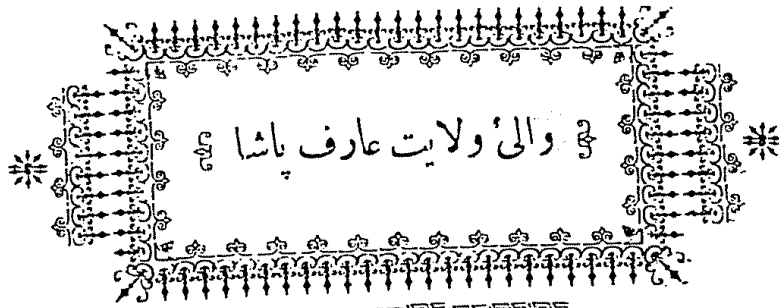 والئ ولايت عارف پاشا